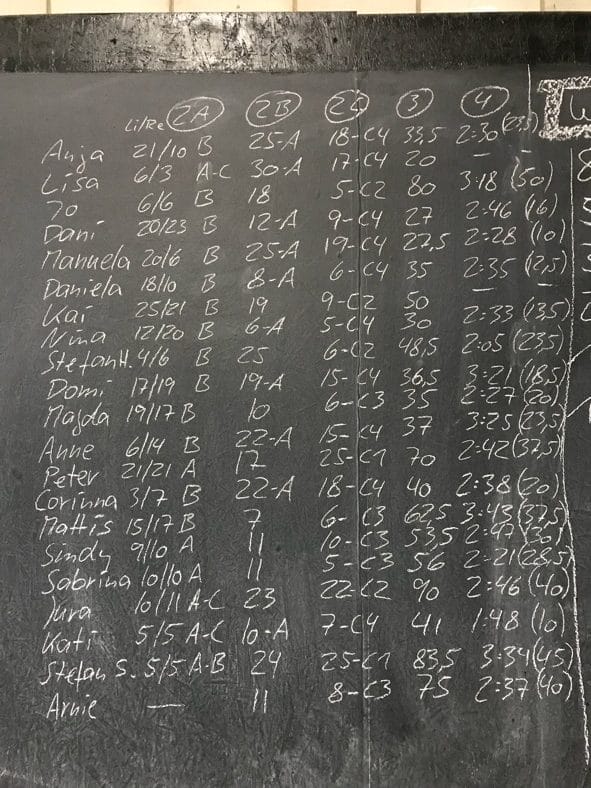 Li/Re 2A 2B 2C 3 4
Anja 21/10 B 25-A 18-C4 33,5 2:30 (23,5)
Lisa 6/3 A-C 30-A 17-C4 20 —
Jo 6/6 B 18 5-C2 80 3:18 (50)
Dani 20/23 B 12-A 9-C4 27 2:46 (16)
Manuela 20/6 B 25-A 19-C4 22,5 2:28 (10)
Daniela 18/10 B 8-A 6-C4 35 2:35 (2,5)
Kai 25/21 B 19 9-C2 50 —
Nina 12/20 B 6-A 5-C4 30 2:33 (13,5)
Stefan H. 4/6 B 25 6-C2 48,5 2:05 (23,5)
Domi 17/19 B 19-A 15-C4 36,5 3:21 (18,5)
Magda 19/17 B 10 6-C3 35 2:27 (20)
Anne 6/14 B 22-A 15-C4 37 3:25 (23,5)
Peter 21/21 A 17 25-C1 70 2:42 (37,5)
Corinna 3/7 B 22-A 18-C4 40 2:38 (20)
Mattis 15/17 B 7 6-C3 62,5 3:43 (37,5)
Sindy 9/10 A 11 10-C3 53,5 2:47 (30)
Sabrina 10/10 A 11 5-C3 56 2:21 (28,5)
Jura 10/11 A-C 23 22-C2 90 2:46 (40)
Kati 5/5 A-C 10-A 7-C4 41 1:48 (10)
Stefan S. 5/5 A-B 24 25-C1 83,5 3:34 (45)
Arnie — 11 8-C3 75 2:37 (40)